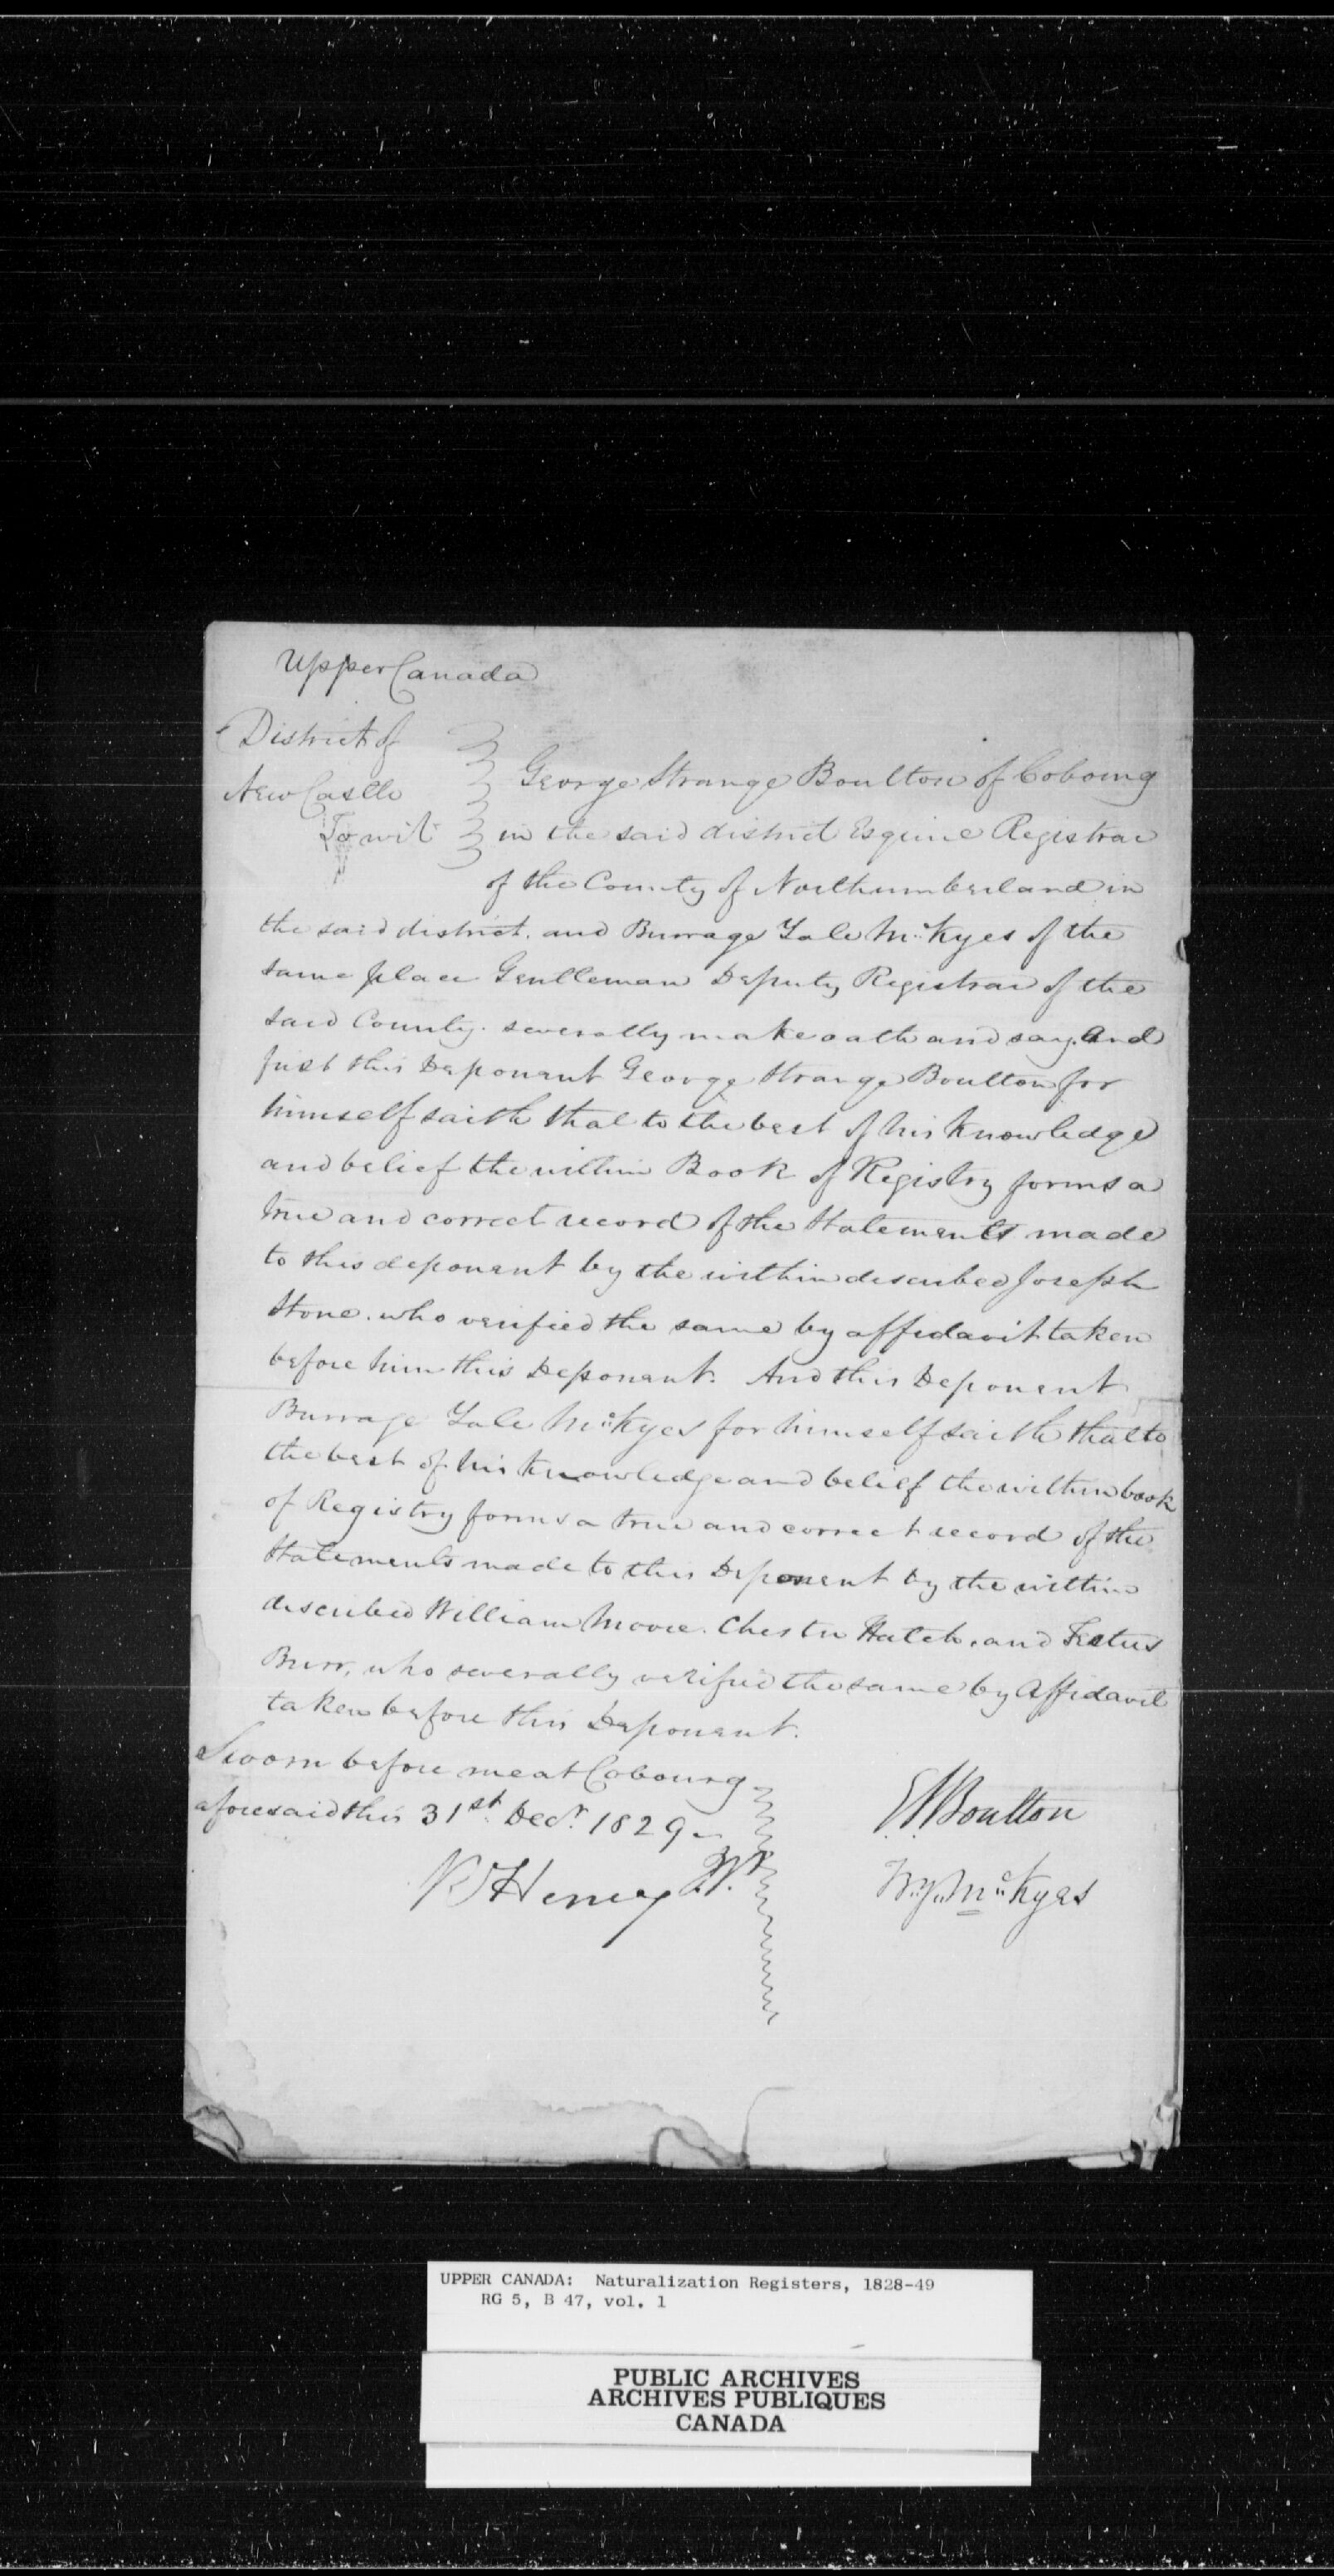 Upper Canada
District of
New Castle
To wit
George Strange Boulton of Cobourg
in the said district Esquire Registrar
of the County of Northumberland in
the said district. and Burrage Yale McKyes of the
same place Gentleman Deputy Registrar of the
said County. severally make oath and say. And
first this Deponent George Strange Boulton for
himself saith that to the best of his knowledge
and belief the within Book of Registry forms a
true and correct record of the Statements made
to this deponent by the within described Joseph
Stone. who verified the same by affidavit taken
before him this Deponent. And this Deponent
Burrage Yale McKyes for himself saith that to
the best of his knowledge and belief the within book
of Registry forms a true and correct record of the
Statements made to this Deponent by the within
described William Moore. Chester Hatch. and Festus
Burr, who severally verified the same by Affidavit
taken before this Deponent.
Sworn before me at Cobourg
aforesaid this 31st Decr. 1829
Henry
GS Boulton
B.Y. McKyes
UPPER CANADA: Naturalization Registers, 1828-49
RG 5, B 47, vol. 1
PUBLIC ARCHIVES
ARCHIVES PUBLIQUES
CANADA